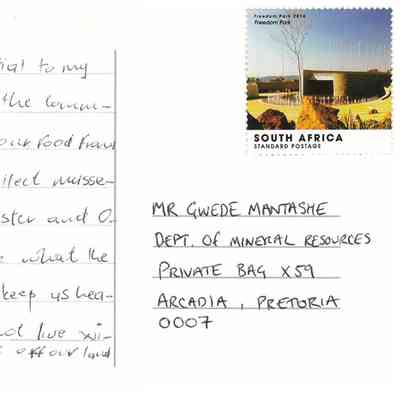 Freedom Park 2014
Freedom Park
SOUTH AFRICA
STANDARD POSTAGE
to my
the comm-
our food from
ster and O
what the
keep us hea-
live wi-
off our land
MR GWEDE MANTASHE
DEPT. OF MINERAL RESOURCES
PRIVATE BAG X59
ARCADIA, PRETORIA
0007